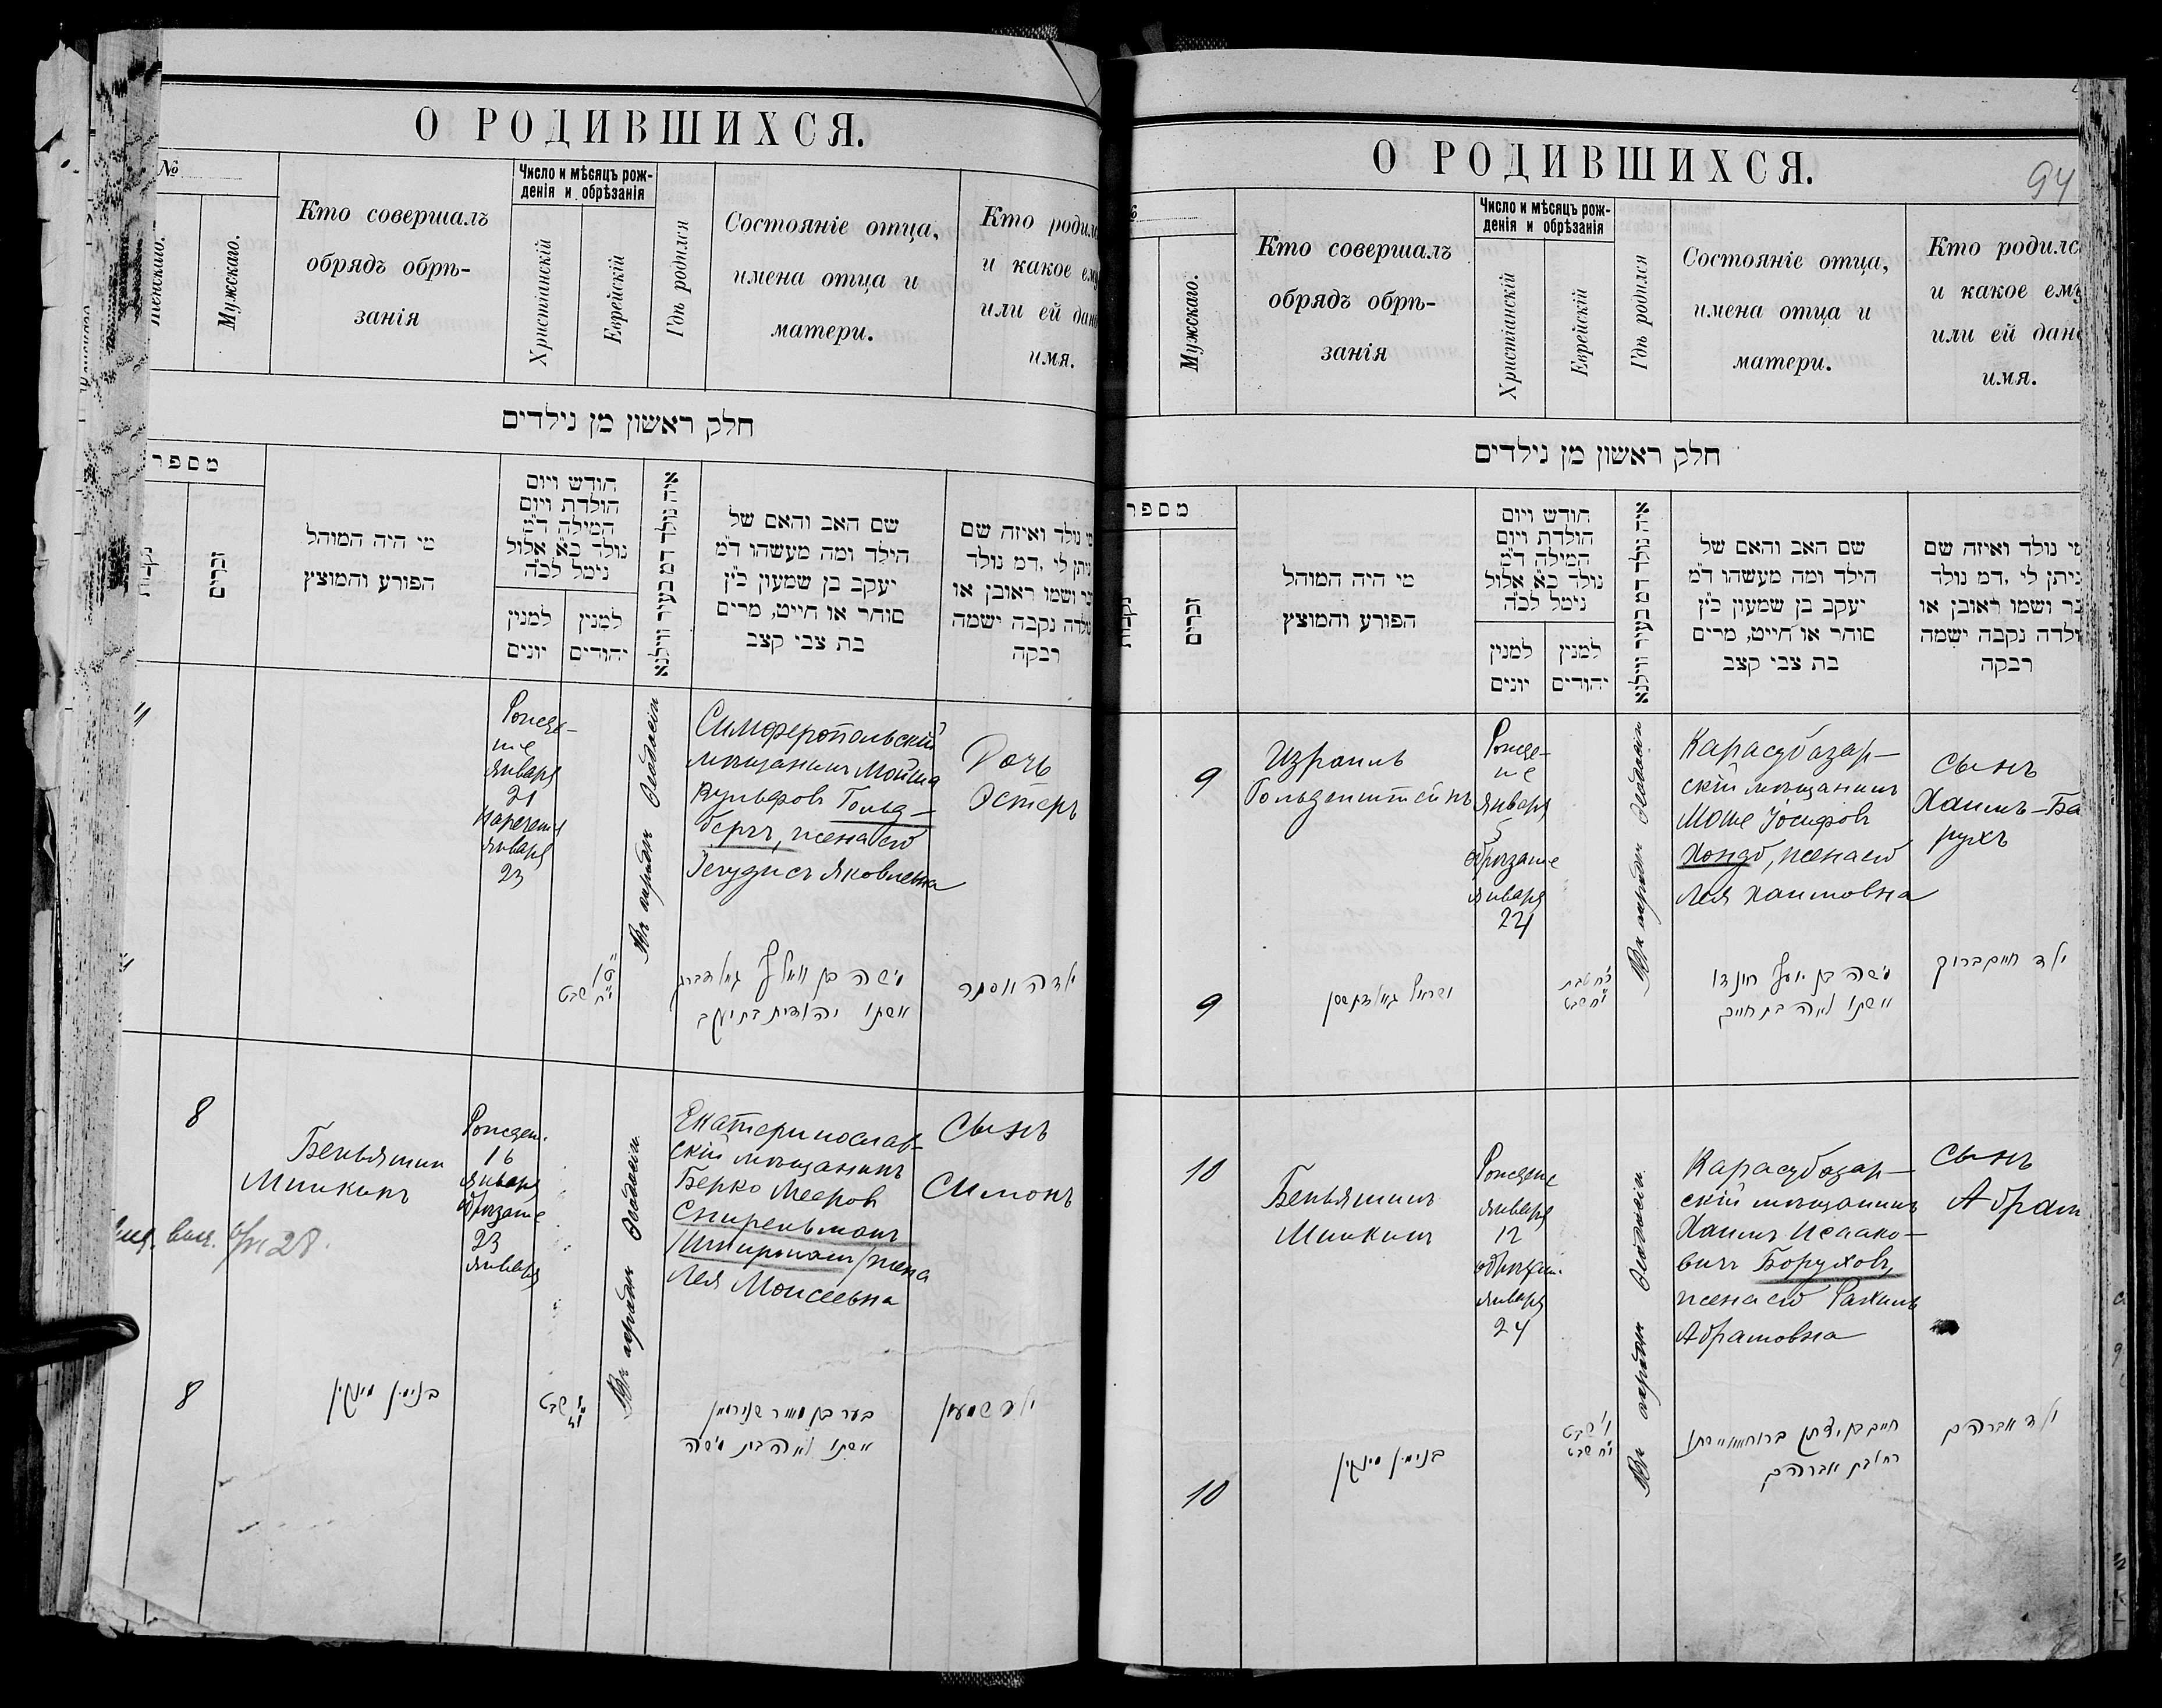 О РОДИВШИХСЯ.
№
Женскаго.
Мужскаго.
Кто совершалъ
обрядъ обрѣ-
занія
Число и мѣсяцъ рож-
денія и обрѣзанія
Христіанскій
Еврейскій
Гдѣ родился
Состояніе отца,
имена отца и
матери.
Кто родился
и какое ему
или ей дано
имя.
חלק ראשון מן נילדים
מספר
זכרים
מי היה המוהל
הפורע והמוצץ
חודש ויום
הולדת ויום
המילה ד"מ
נולד כ"א אלול
נימל לכ"ה
למנין
יונים
למנין
יהודים
איה נולד דמ בעיר ווילנא
שם האב והאם של
הילד ומה מעשהו ד"מ
יעקב בן שמעון כ"ץ
סוחר או חייט, מרים
בת צבי קצב
מי נולד ואיזה שם
ניתן לי .דמ נולד
ושמו ראובן או
נקבה ישמה
רבקה
Рожде-
ніе
января
21
Нареченіе
января
23
Въ городѣ Ѳеодосіи
Симферопольскій
мѣщанинъ Мойша
Вульфовъ Гольд-
бергъ, жена его
Іегудисъ Яковлевна
Дочь
Эстеръ
י"ח שבט
משה בן וואלף גאלדברג
אשתו יהודית בת יעקב
ילדה אסתר
8
Беньяминъ
Минкинъ
Рожден.
16
января
обрѣзаніе
23
января
Въ городѣ Ѳеодосіи
Екатеринослав-
скій мѣщанинъ
Берко Мееровъ
Снирельманъ
/Шнирманъ/ жена
Лея Моисеевна
Сынъ
Симонъ
28.
8
בנימין מינקין
שבט
בער בן מאיר שנירמאן
אשתו לאה בת משה
ילד שמעון
О РОДИВШИХСЯ.
94
Мужскаго.
Кто совершалъ
обрядъ обрѣ-
занія
Число и мѣсяцъ рож-
денія и обрѣзанія
Христіанскій
Еврейскій
Гдѣ родился
Состояніе отца,
имена отца и
матери.
Кто родился
и какое ему
или ей дано
имя.
חלק ראשון מן נילדים
מספר
זכרים
מי היה המוהל
הפורע והמוצץ
חודש ויום
הולדת ויום
המילה ד"מ
נולד כ"א אלול
נימל לכ"ה
למנין
יונים
למנין
יהודים
איה נולד דמ בעיר ווילנא
שם האב והאם של
הילד ומה מעשהו ד"מ
יעקב בן שמעון כ"ץ
סוחר או חייט, מרים
בת צבי קצב
מי נולד ואיזה שם
ניתן לי .דמ נולד
ושמו ראובן או
נקבה ישמה
רבקה
9
Израиль
Гольденштейнъ
Рожде-
ніе
января
5
обрѣзаніе
января
24
Въ городѣ Ѳеодосіи
Карасубазар-
скій мѣщанинъ
Моше Іосифовъ
Хондо, жена его
Лея Хаимовна
Сынъ
Хаимъ-Ба
рухъ
9
ישראל גאלדנשטיין
כ"ח טבת
י"ח שבט
משה בן יוסף חונדו
אשתו לאה בת חיים
ילד חיים ברוך
10
Беньяминъ
Минкинъ
Рожденіе
января
12
обрѣзан.
января
24
Въ городѣ Ѳеодосіи
Карасубазар-
скій мѣщанинъ
Хаимъ Исаако-
вичъ Боруховъ,
жена его Рахиль
Абрамовна
Сынъ
Абрам
10
בנימין מינקין
ו' שבט
י"ח שבט
חיים בן יצחק ברוחאוו אשתו
רחל בת אברהם
ילד אברהם